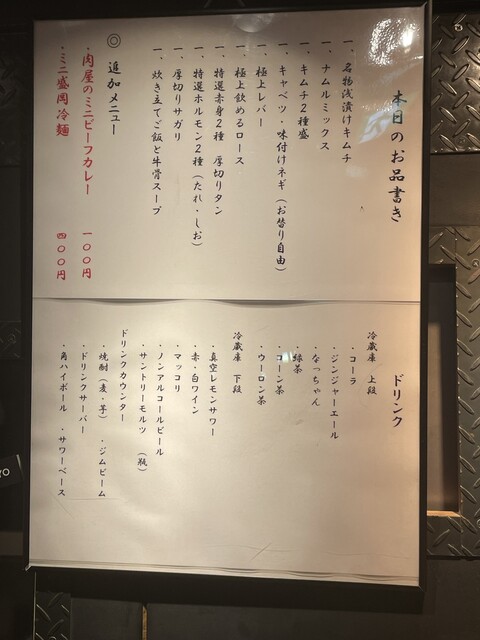 本日のお品書き
一、名物浅漬けキムチ
一、ナムルミックス
一、キムチ2種盛
一、キャベツ・味付けネギ(お替り自由)
一、極上レバー
一、極上飲めるロース
一、特選赤身2種 厚切りタン
一、特選ホルモン2種(たれ・しお)
一、厚切りサガリ
一、炊き立てご飯と牛骨スープ
◎ 追加メニュー
・肉屋のミニビーフカレー 一〇〇円
・ミニ盛岡冷麺 四〇〇円
ドリンク
冷蔵庫 上段
・コーラ
・ジンジャーエール
・なっちゃん
・緑茶
・コーン茶
・ウーロン茶
冷蔵庫 下段
・真空レモンサワー
・赤・白ワイン
・マッコリ
・ノンアルコールビール
・サントリーモルツ (瓶)
ドリンクカウンター
・焼酎(麦・芋) ・ジムビーム
・ドリンクサーバー
・角ハイボール ・サワーベース